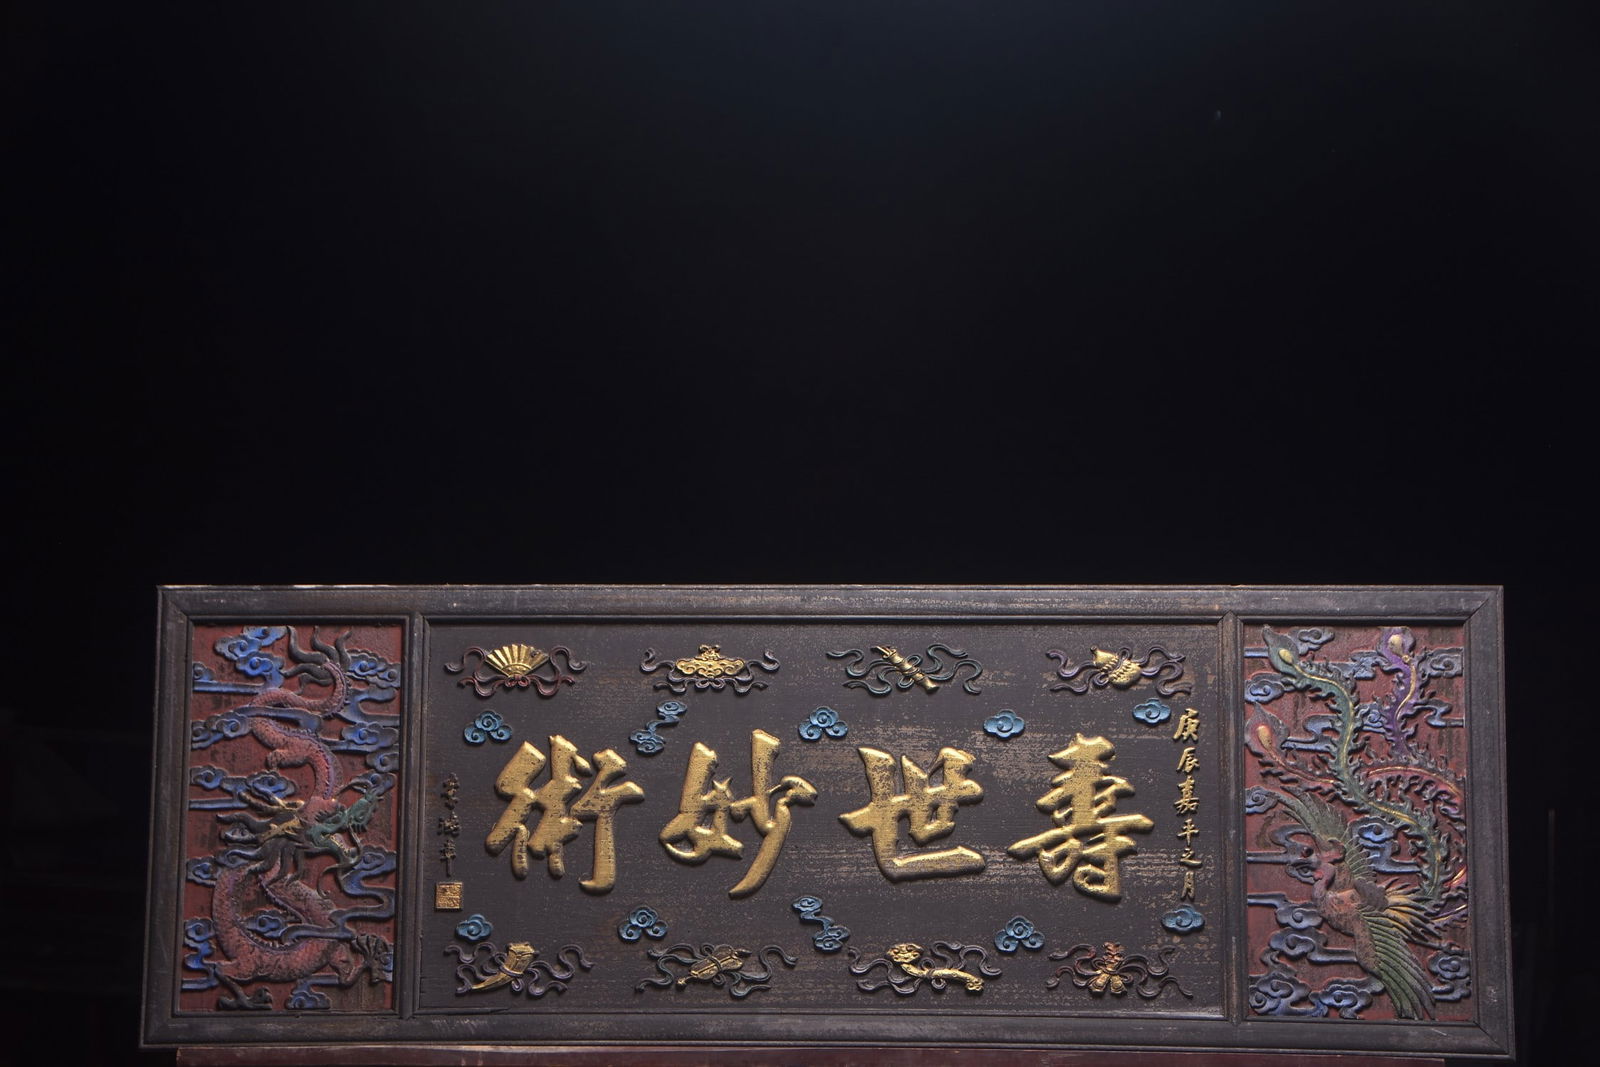 庚辰嘉平之月
壽世妙術